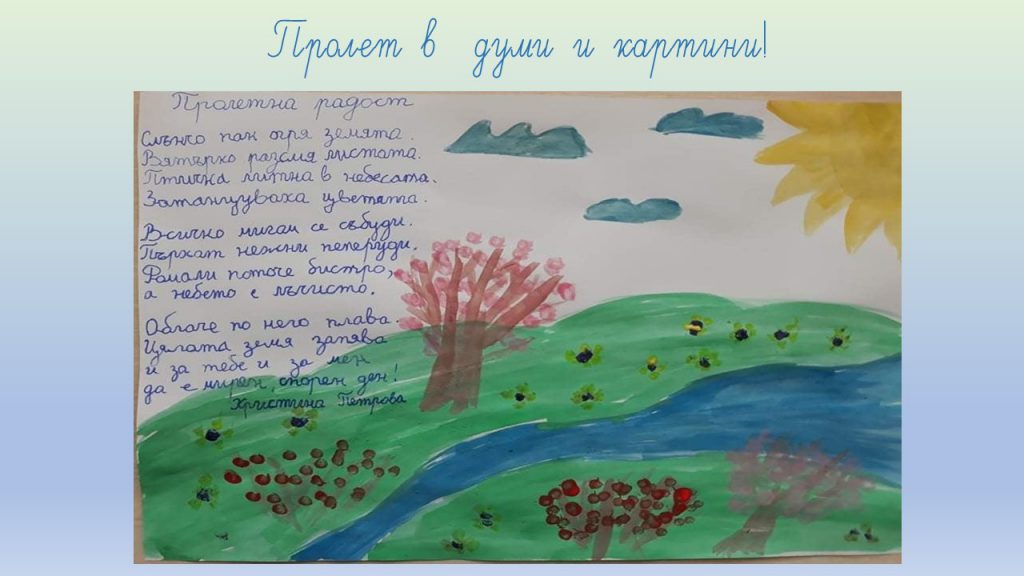 Пролет в думи и картини!
Пролетна радост
Слънчо пак огря земята.
Вятърко разсмя листата.
Птичка литна в небесата.
Затанцуваха цветята.
Всичко мигом се събуди.
Пърхат нежни пеперуди.
Ромали поточе бистро,
а небето е лъчисто.
Облаче по него плава.
Цялата земя запява
и за тебе и за мен
да е мирен, спорен ден!
Христина Петрова